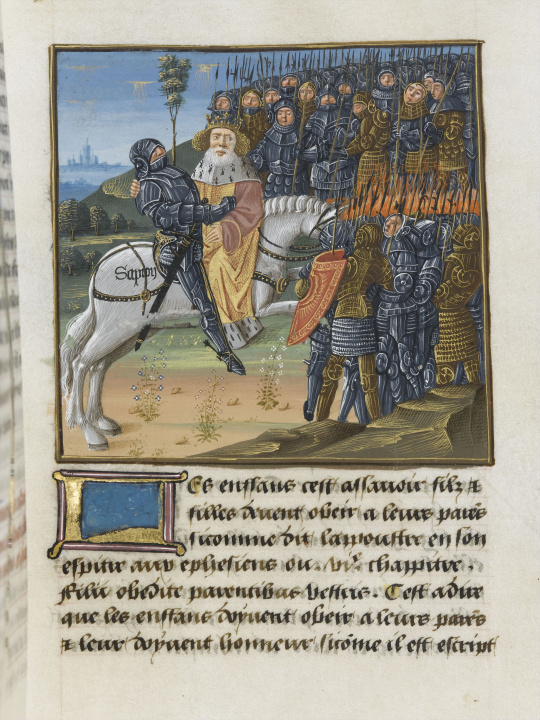 Sapipy
Es enffans cest assauoir filz ⁊
filles doiuent obeir a leurs pares
sicomme dit lappoustre en son
espitre aux ephesiens ou .viᵉ. chappitre.
Filii obedite parentibus vestris. Cest adire
que les enffans doyuent obeir a leurs pares
⁊ leur doyuent honneur sicōme il est escript